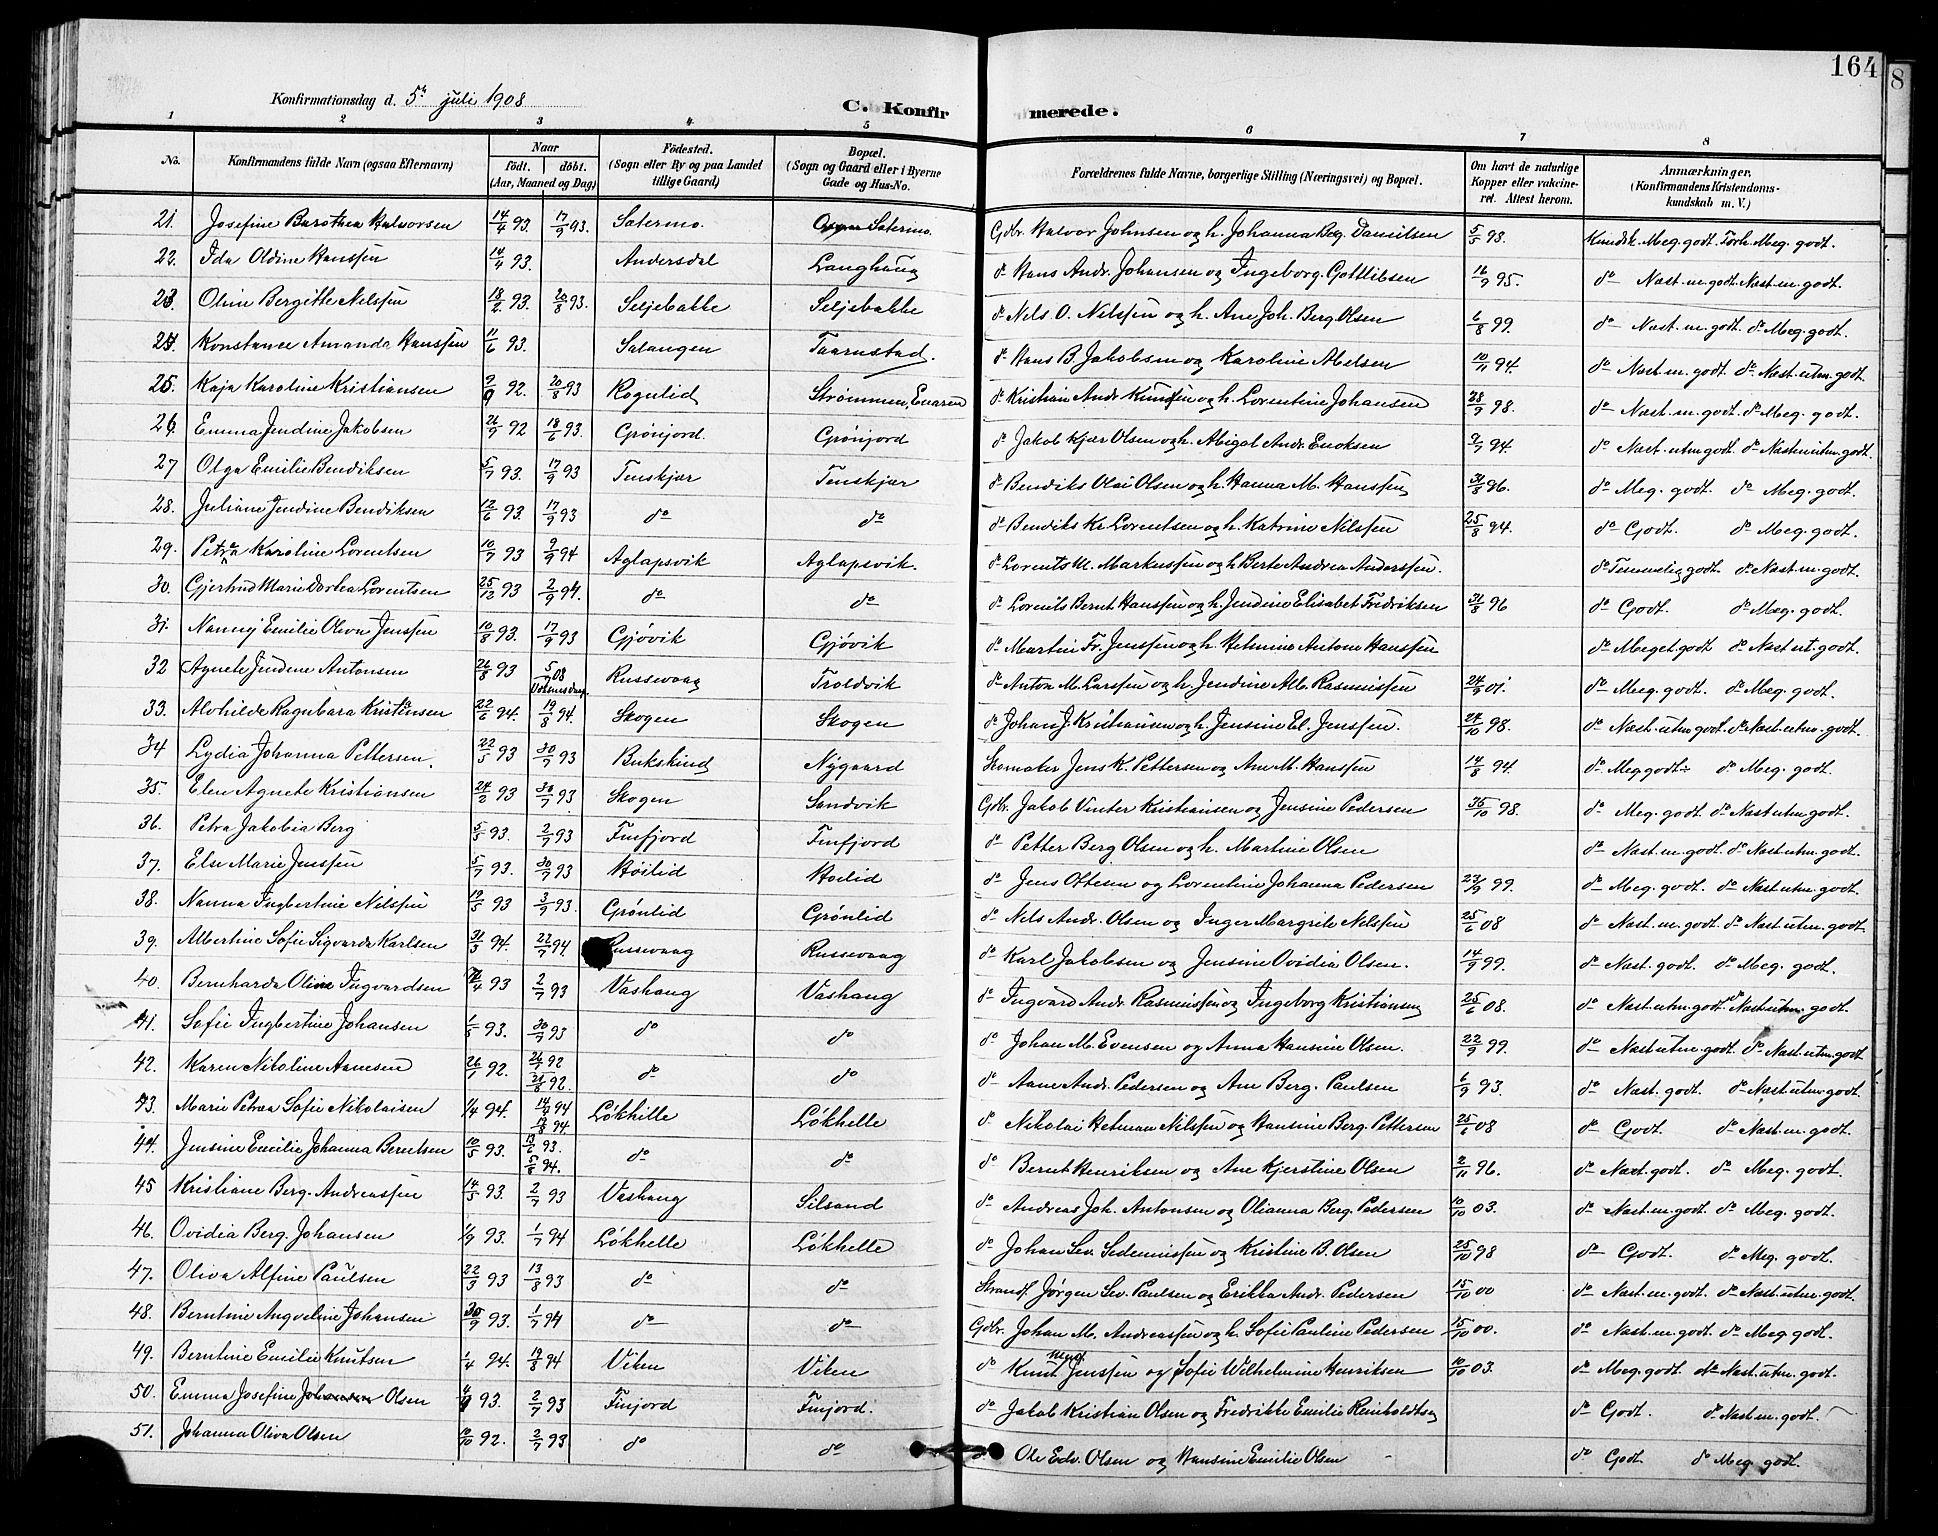 164
8
Konfirmationsdag d. 5te juli 1908
C. Konfirmerede.
1 2 3 4 5 6 7 8
No. Konfirmandens fulde Navn (ogsaa Efternavn) Naar födt. döbt. (Aar, Maaned og Dag) Födested. (Sogn eller By og paa Landet tillige Gaard) Bopæl. (Sogn og Gaard eller i Byerne Gade og Hus-No. Forældrenes fulde Navne, borgerlige Stilling (Næringsvei) og Bopæl. Om havt de naturlige Kopper eller vakcineret. Attest herom. Anmærkninger. (Konfirmandens Kristendomskundskab m. V.)
21. Josefine Barothea Halvorsen 14/4 93. 17/9 93. Sætermo. Sætermo. Gdbr. Halvor Johnsen og h. Johanna Reg. Danielsen 5/5 98. Kundsk. Meg. godt. Forh. Meg. godt.
22. Ida Oldine Hanssen 14/4 93. Andersdal Langhaug do Hans Andr. Johansen og Ingeborg Gottlibsen 16/9 95. do Næst. m. godt. Næst. m. godt.
23. Oline Bergitte Nilssen 18/2 93. 20/8 93. Seljebakke Seljebakke do Nels O. Nilssen og h. Ane Joh. Berg Olsen 6/8 99. do Næst. m. godt do Meg. godt.
24. Konstance Amanda Hanssen 11/6 93. Salangen Taarnstad. do Hans B. Jakobsen og Karoline Abelsen 10/11 94. do Næst. m. godt. do Næst. utm. godt.
25. Kaja Karoline Kristiansen 9/9 92. 20/8 93 Rognlid Strømmen, do Kristian Andr. Knudsen og h. Lorentine Johansen 28/9 98. do Næst. m. godt. do Meg. godt.
26. Emma Jendine Jakobsen 26/9 92 18/6 93. Grönjord. Grönjord do Jakob Kjær Olsen og h. Abigal Andr. Enoksen 9/7 94. do Næst. utm godt. do Næsten utm. godt.
27 Olga Emilie Bendiksen 5/7 93. 17/9 93 Tenskjær Tenskjær do Bendiks Olai Olsen og h. Hanna M. Hanssen 31/8 96. do Meg. godt. do Meg. godt.
28. Juliane Jendine Bendiksen 12/6 93. 17/9 93 do do do Bendiks Kr. Lorentsen og h. Katrine Nilssen 25/8 94. do Godt. do Meg. godt.
29. Petra Karoline Lorentsen 10/7 93 2/9 94 Aglapsvik Aglapsvik. do Lorents M. Markussen og h Berte Andrea Anderssen. do Temmelig godt. do Næst. m. godt.
30. Gjertrud Marie Dorthea Lorentsen 25/12 93 2/9 94. do do do Lorents Bernt Hanssen og h. Jendine Elisabet Fredriksen 31/8 96 do Godt. do Meg. godt.
31. Nanny Emilie Olivia Jenssen 10/8 93. 17/9 93 Gjövik Gjövik do Martin Fr. Jenssen og h. Helmine Antone Hanssen do Meget godt do Næst ut. godt.
32 Agnete Jendine Antonsen 26/8 93 5/7 08 Russevaag Troldvik do Anton M. Larssen og h. Jendine Alb. Rasmussen 24/9 01. do Meg. godt. do Meg. godt.
33. Alvhilde Ragnbara Kristensen 22/6 94. 19/8 94. Skogen Skogen do Johan J. Kristiansen og h. Jensine El. Jenssen. 24/10 98. do Næst. utm godt. do Næst. utm. godt.
34 Lydia Johanna Pettersen. 22/5 93 30/7 93 Bukskind Nygaard Skomaker Jens K. Pettersen og Ane M. Hanssen 14/8 94. do Meg godt. do Meg. godt.
35. Elen Agnete Kristiansen 24/2 93 30/7 93 Skogen Sandvik Gdbr. Jakob Vinter Kristiansen og Jensine Pedersen 10 98. do Meg. godt do Næst utm godt.
36. Petra Jakobia Berg 5/5 93. 2/7 93 Finfjord Finfjord do Petter Berg Olsen og h. Martine Olsen do Næst. m. godt do Næst. utm. godt.
37. Else Marie Jenssen 5/7 93. 30/7 93 Höilid Höilid do Jens Ottesen og Lorentine Johanna Pedersen 23/9 99. do Meg. godt. do Næst utm. godt.
38. Nanna Ingbertine Nilssen 19/5 93 3/9 93. Grönlid Grönlid do Nels Andr. Olsen og Inger Margrite Nilssen 25/6 08 do Næst. m. godt. do Næst utm. godt.
39. Albertine Sofie Sigvarda Karlsen 31/3 94. 22/7 94. Russevaag Russevaag do Karl Jakobsen og Jensine Ovidia Olsen. 14/9 99. do Næst. godt. do Meg. godt.
40. Bernharda Oline Ingvardsen 4 93 2/7 93 Vashaug Vashaug do Ingvard Andr. Rasmussen og Ingeborg Kristiansen 25/6 08. do Næst. utm. godt do Næst utm. godt.
41. Sofie Ingbertine Johansen 1/5 93. 30/7 93 do do do Johan M. Evensen og Anna Hansine Olsen. 22/9 99. do Næst utm. godt. do Næst. utm. godt
42. Karen Nikoline Arnesen 26/7 92. 26/7 92 21/8 92. do do do Arne Andr. Pedersen og Ane Berg. Paulsen 6/9 93. do Næst. godt. do Næst utm. godt
43. Marie Petrea Sofie Nikolaisen 1/4 94. Lökhelle Lökhelle do Nikolai Helman Nilssen og Hansine Berg. Pettersen 25/6 08 do Godt do Næst. m. godt.
44. Jensine Emilie Johanna Berntsen 10/5 93. 13/6 93. 5/8 94. do do do Bernt Henriksen og Ane Kjerstine Olsen 2/11 96. do Næst. godt. do Meg. godt.
45 Kristiane Berg. Andreassen 14/5 93. 2/7 93 Vashaug Silsand do Andreas Joh. Antonsen og Olianna Berg. Pedersen 10/10 03. do Næst. m. godt do Meg. godt.
46. Ovidia Berg. Johansen 1/9 93. 1/7 94 Lökhelle Lökhelle do Johan Sev. Sedeniussen og Kristine B. Olsen 25/10 98 do Godt. do Meg. godt.
47. Oliva Alfine Paulsen 22/3 93 13/8 93 do do Strands. Jørgen Sev. Paulsen og Erikka Andr. Pedersen 15/10 00 do Næst. m. godt. do Næst. utm. godt.
48. Berntine Angveline Johansen 30/9 93. 1/7 94 do do Gdbr. Johan M. Andreassen og h. Sofie Pauline Pedersen 15/10 00. do Næst. m. godt. do Meg. godt.
49. Berntine Emilie Knutsen 1/4 94. 19/8 94 Viken Viken do Knut Jenssen og Sofie Wilhelmine Henriksen 10/10 03. do Meg. godt. do Næst utm. godt.
50. Emma Josefine Johansen Olsen 93. 2/7 93 Finjord Finjord. do Jakob Kristian Olsen og Fredrikke Emilie Reinholdtsen do Godt. do Næst. m. godt.
51. Johanna Oliva Olsen 10/10 92. 2/7 93 do do Ole Edv. Olsen og Hansine Emilie Olsen do Godt do Meg. godt.